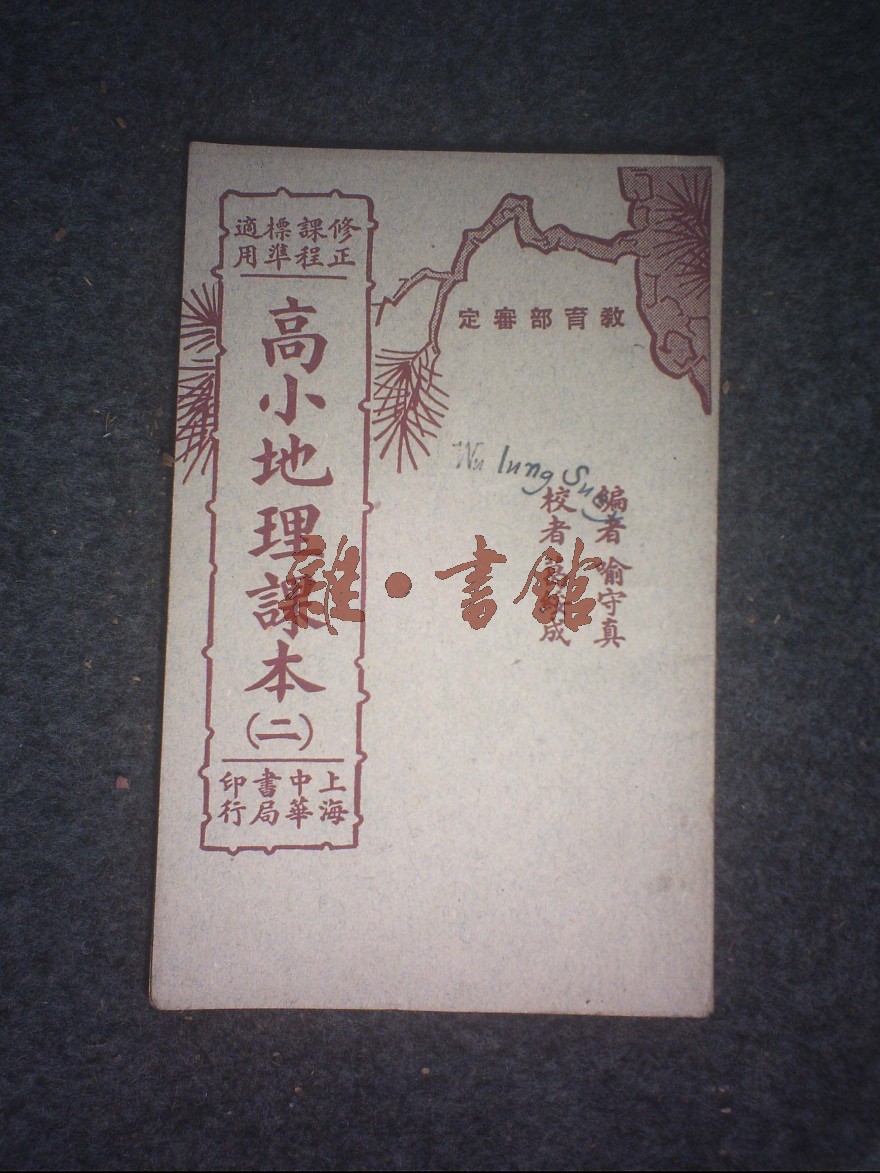 修正課程標準適用
高小地理課本
(二)
上海中華書局印行
教育部審定
Wu lung Sung
編著 喻守真
校者 成
雜·書館